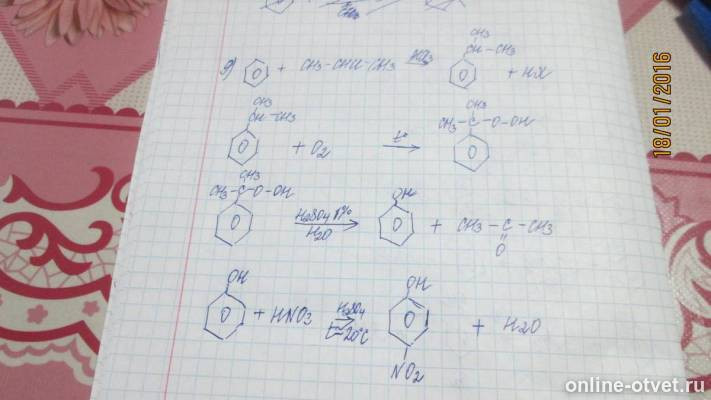 CH3
CH3
CH-CH3
+ CH3-CHCl-CH3
+ HX
CH3
CH-CH3
+ O2
t°
CH3
CH3-C-O-OH
CH3
CH3-C-O-OH
H2SO4 1%
H2O
OH
+ CH3-C-CH3
O
OH
+ HNO3
H2SO4
t≈20°C
OH
NO2
+ H2O
18/01/2016
online-otvet.ru